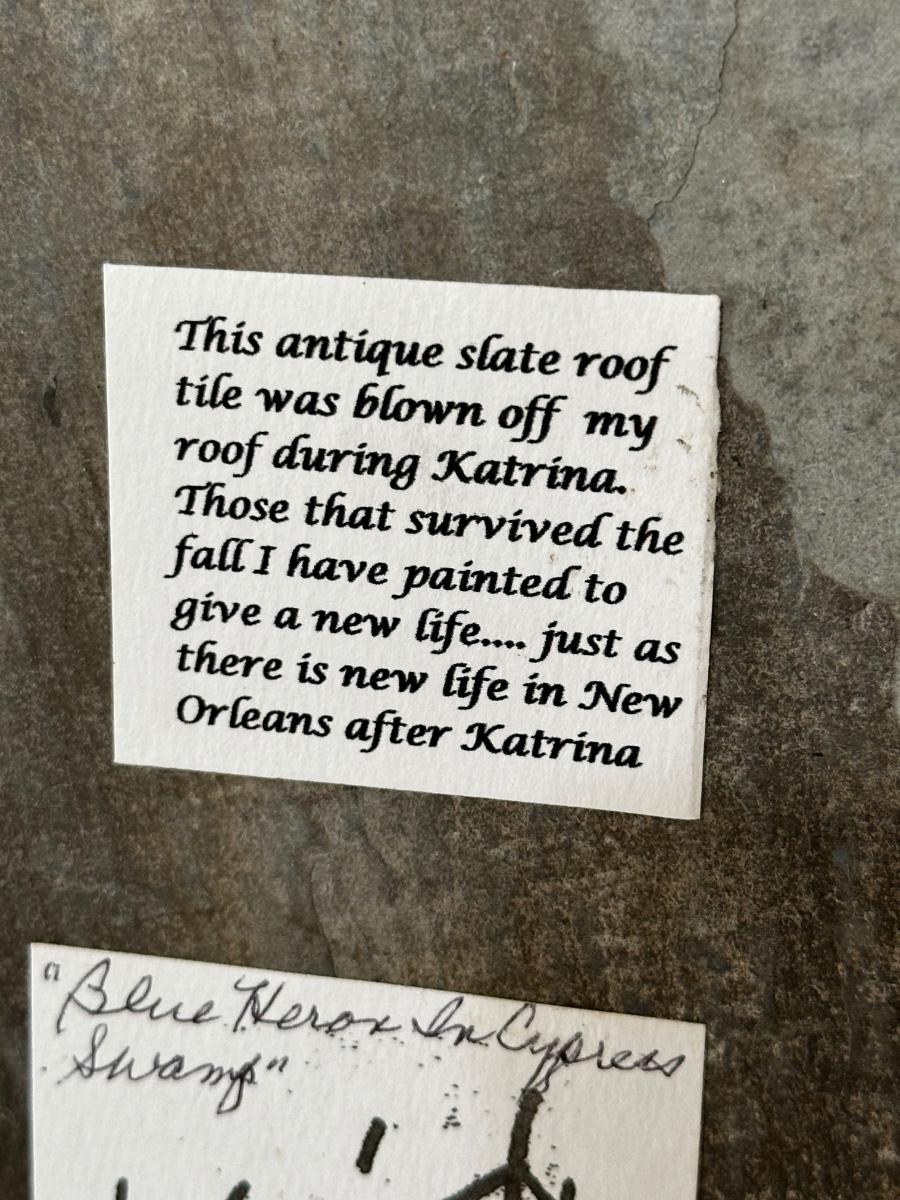 This antique slate roof
tile was blown off my
roof during Katrina.
Those that survived the
fall I have painted to
give a new life.... just as
there is new life in New
Orleans after Katrina
"Blue Heron In Cypress
Swamp"